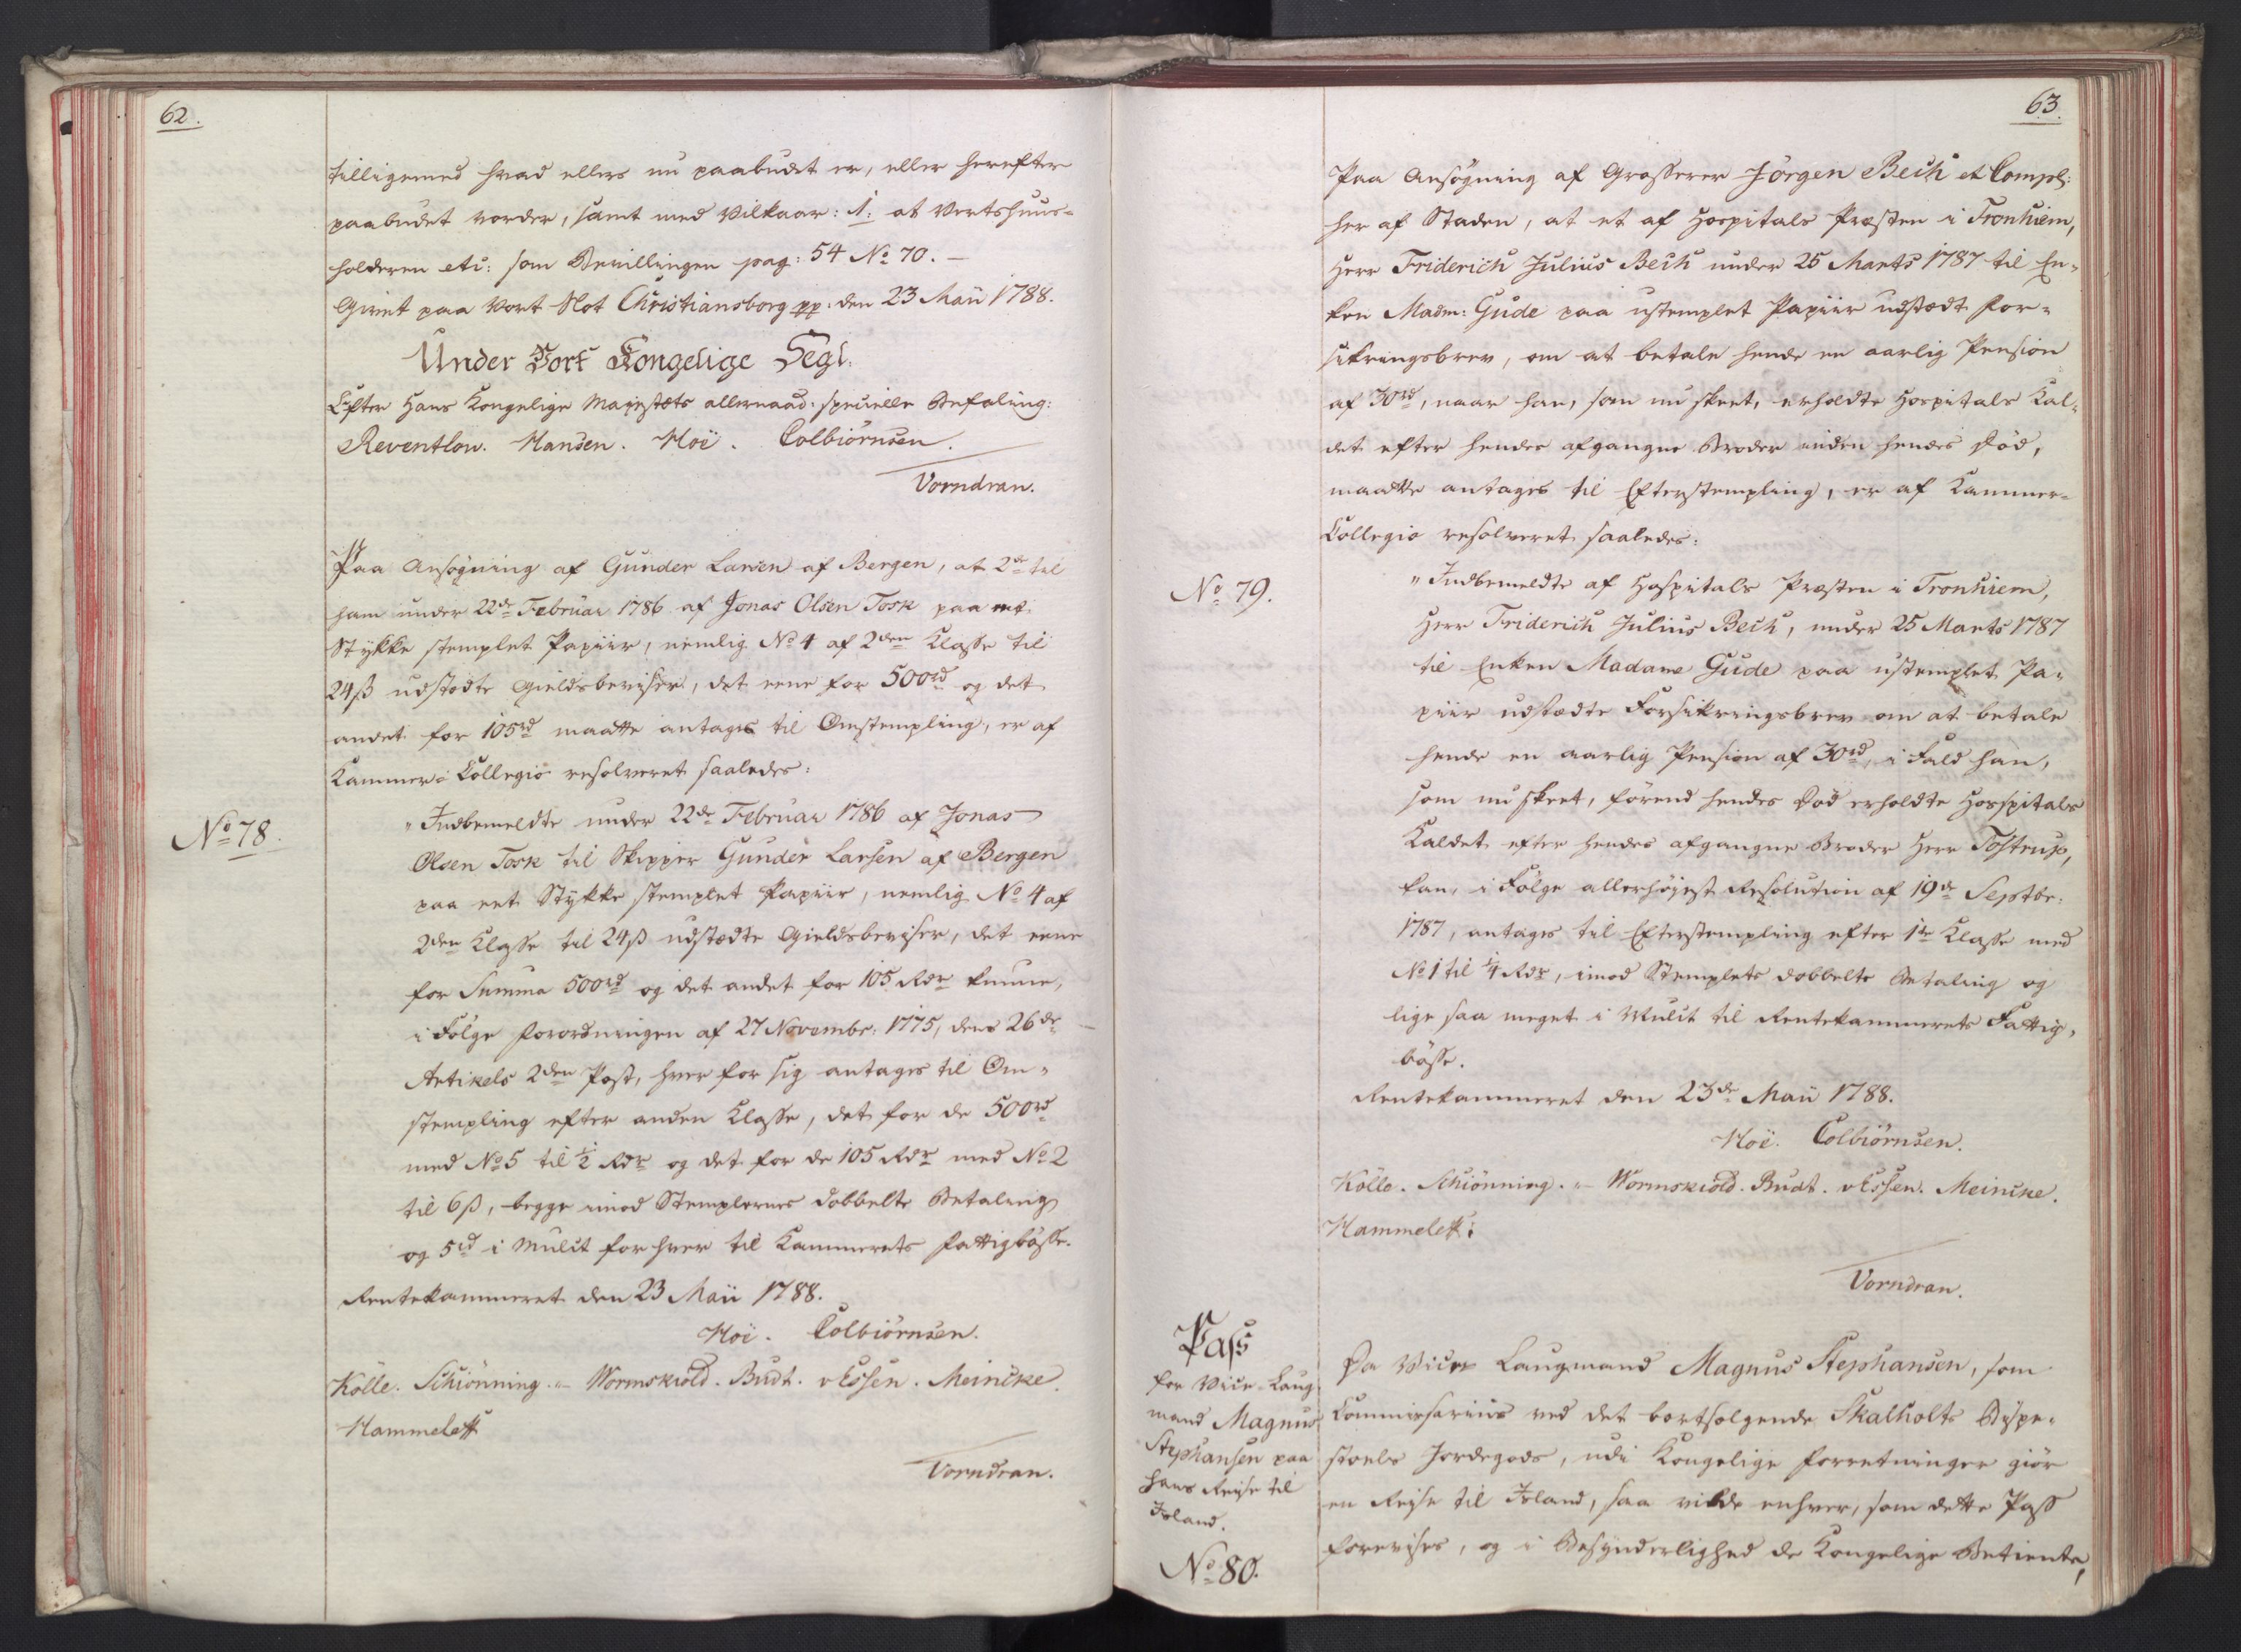 62.
tilligemed hvad ellers nu paabudet er, eller herefter
paabudet vorder, samt med Vilkaar: 1: at Vertshuus-
holderen etc: som Bevillingen pag: 54 No 70. —
Givet paa Vort Slot Christiansborg pp: den 23 Maii 1788.
Under Vort Kongelige Segl.
Efter Hans Kongelige Majestæts allernaad: specielle Befaling:
Reventlow. Hansen. Hoë. Colbiørnsen.
Vorndran.
Paa Ansøgning af Gunder Larsen af Bergen, at 2de til
ham under 22de Februar 1786 af Jonas Olsen Tosk paa et
Stykke stemplet Papiir, nemlig No 4 af 2den Classe til
24ß udstædte Gieldsbeviser, det eene for 500rd og det
andet for 105rd maatte antages til Omstempling, er af
Kammer-Collegio resolveret saaledes:
No 78.
"Indbemeldte under 22de Februar 1786 af Jonas
Olsen Tosk til Skipper Gunder Larsen af Bergen
paa eet Stykke stemplet Papiir, nemlig No 4 af
2den Classe til 24ß udstædte Gieldsbeviser, det eene
for Summa 500rd og det andet for 105 Rdr kunne,
i Følge Forordningen af 27 Novembr: 1775, dens 26de
Artikels 2den Post, hver for sig antages til Om-
stempling efter anden Classe, det for de 500rd
med No 5 til ½ Rdr og det for de 105 Rdr med No 2
til 6ß, begge imod Stemplernes dobbelte Betaling
og 5rd i Mulct for hver til Kammerets Fattigbøsse.
Rentekammeret den 23 Maii 1788.
Hoë. Colbiørnsen.
Kölle. Schiønning. — Wormskiold. Budt. v Essen. Meincke.
Hammeleff
Vorndran.
63.
Paa Ansøgning af Grosserer Jørgen Bech et Compl:
her af Staden, at et af Hospitals Præsten i Tronhiem,
Herr Friderich Julius Bech under 25 Marts 1787 til En-
ken Madm: Gude paa ustemplet Papiir udstædt For-
sikringsbrev, om at betale hende en aarlig Pension
af 30rd, naar han, som nu skeet, erholdte Hospitals Kal-
det efter hendes afgangne Broder inden hendes Død,
maatte antages til Efterstempling, er af Kammer-
Collegio resolveret saaledes:
No 79.
"Indbemeldte af Hospitals Præsten i Tronhiem,
Herr Friderich Julius Bech, under 25 Marts 1787
til Enken Madame Gude paa ustemplet Pa-
piir udstædte Forsikringsbrev om at betale
hende en aarlig Pension af 30rd, i Fald han,
som nu skeet, førend hendes Død erholdte Hospitals
Kaldet efter hendes afgangne Broder Herr Tostrup,
kan, i Følge allerhøjest Resolution af 19de Septbr.
1787, antages til Efterstempling efter 1te Classe med
No 1 til ¼ Rdr, imod Stemplets dobbelte Betaling og
lige saa meget i Mulct til Rentekammerets Fattig-
bøsse.
Rentekammeret den 23de Maii 1788.
Hoë. Colbiørnsen.
Kölle. Schiønning. — Wormskiold. Budt. v Essen. Meincke.
Hammeleff:
Vorndran.
Pass
for Vice-Laug
mand Magnus
Stephansen paa
hans Reise til
Island.
No 80.
Da Vice Laugmand Magnus Stephansen, som
Commissarius ved det bortsolgende Skalholts Bispe-
stoels Jordegods, udi Kongelige Forretninger giør
en Rejse til Island, saa vilde enhver, som dette Pass
forevises, og i Besynderlighed de Kongelige Betiente,